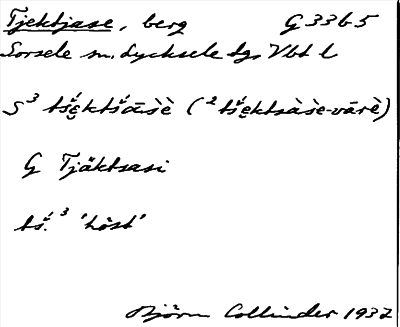 Tjektjase, berg G 33 b 5
Sorsele sn, Lycksele lgs Vbt l
S³ tš́ę́ktš́āsè̀ (²tš́ęktsàsè-vārè)
G Tjäktsasi
tš́.³ 'höst'
Björn Collinder 1937